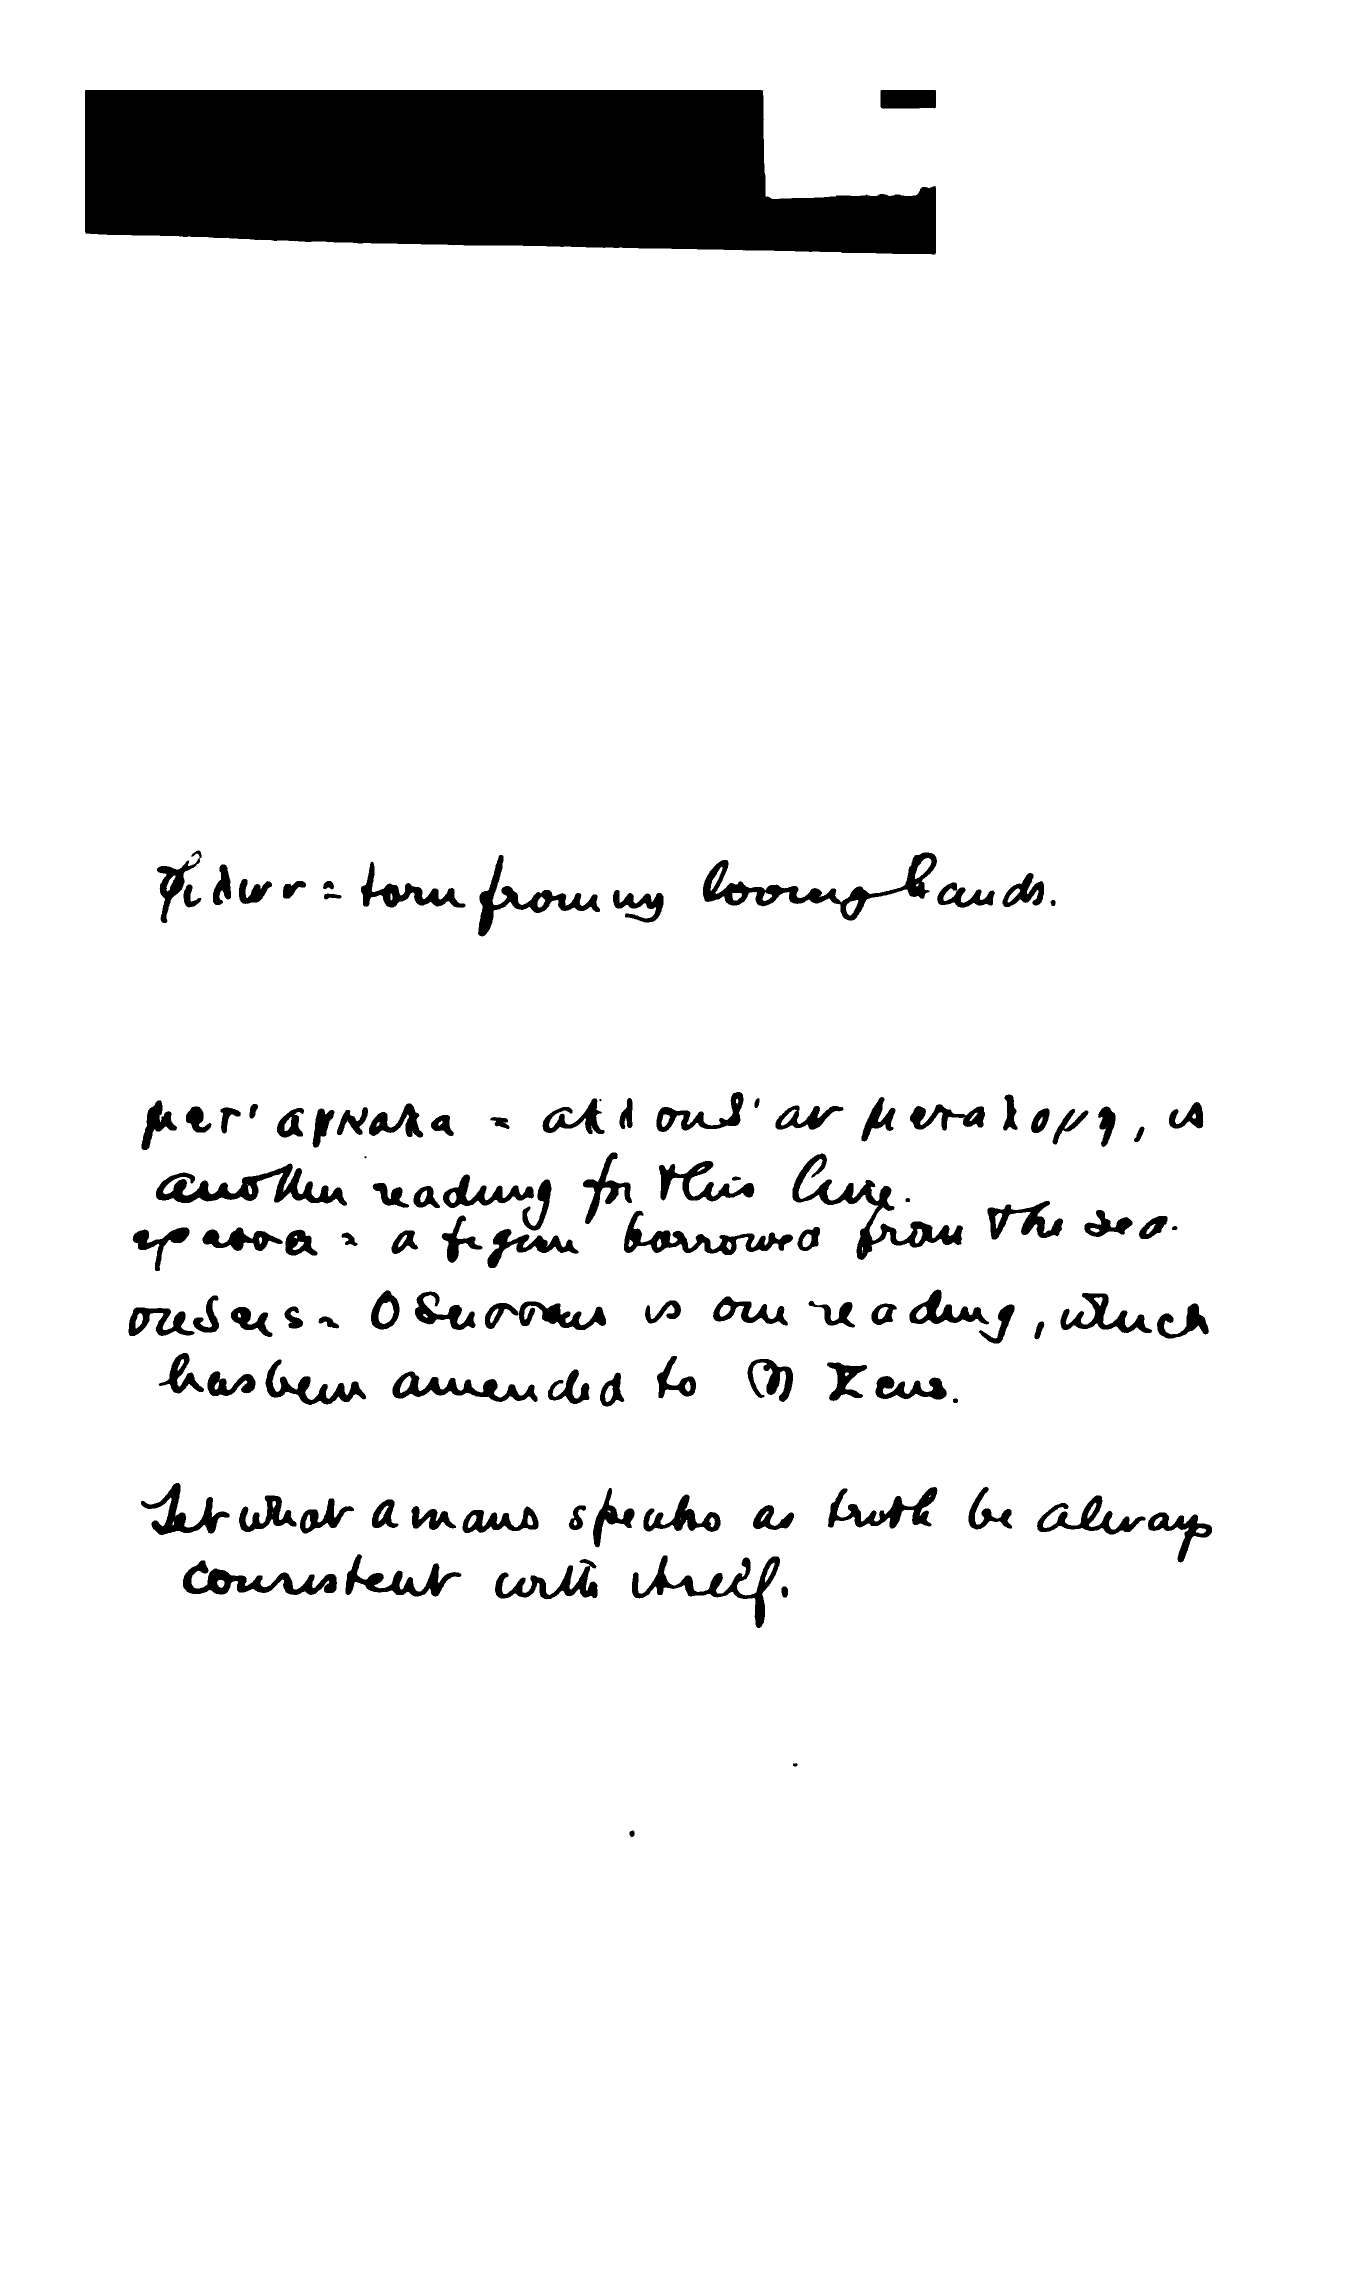 φιλων = torn from my loving hands.
μετ' αρκαλα = ακλ ουδ' αν μεταλομη, is
another reading for this line.
ερασσα = a figure borrowed from the sea.
is one reading, which
has been amended to Zeus.
Let what a man speaks as truth be always
consistent with itself.